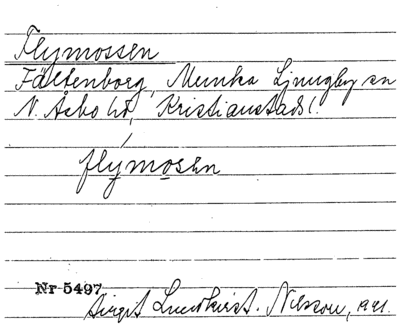 Flymossen
Fältenborg, Munka Ljungby sn
N. Åsbo hd, Kristianstads l.
flýmosen
Nr 5497
Birgit Lundkvist. Nilsson, 1941.